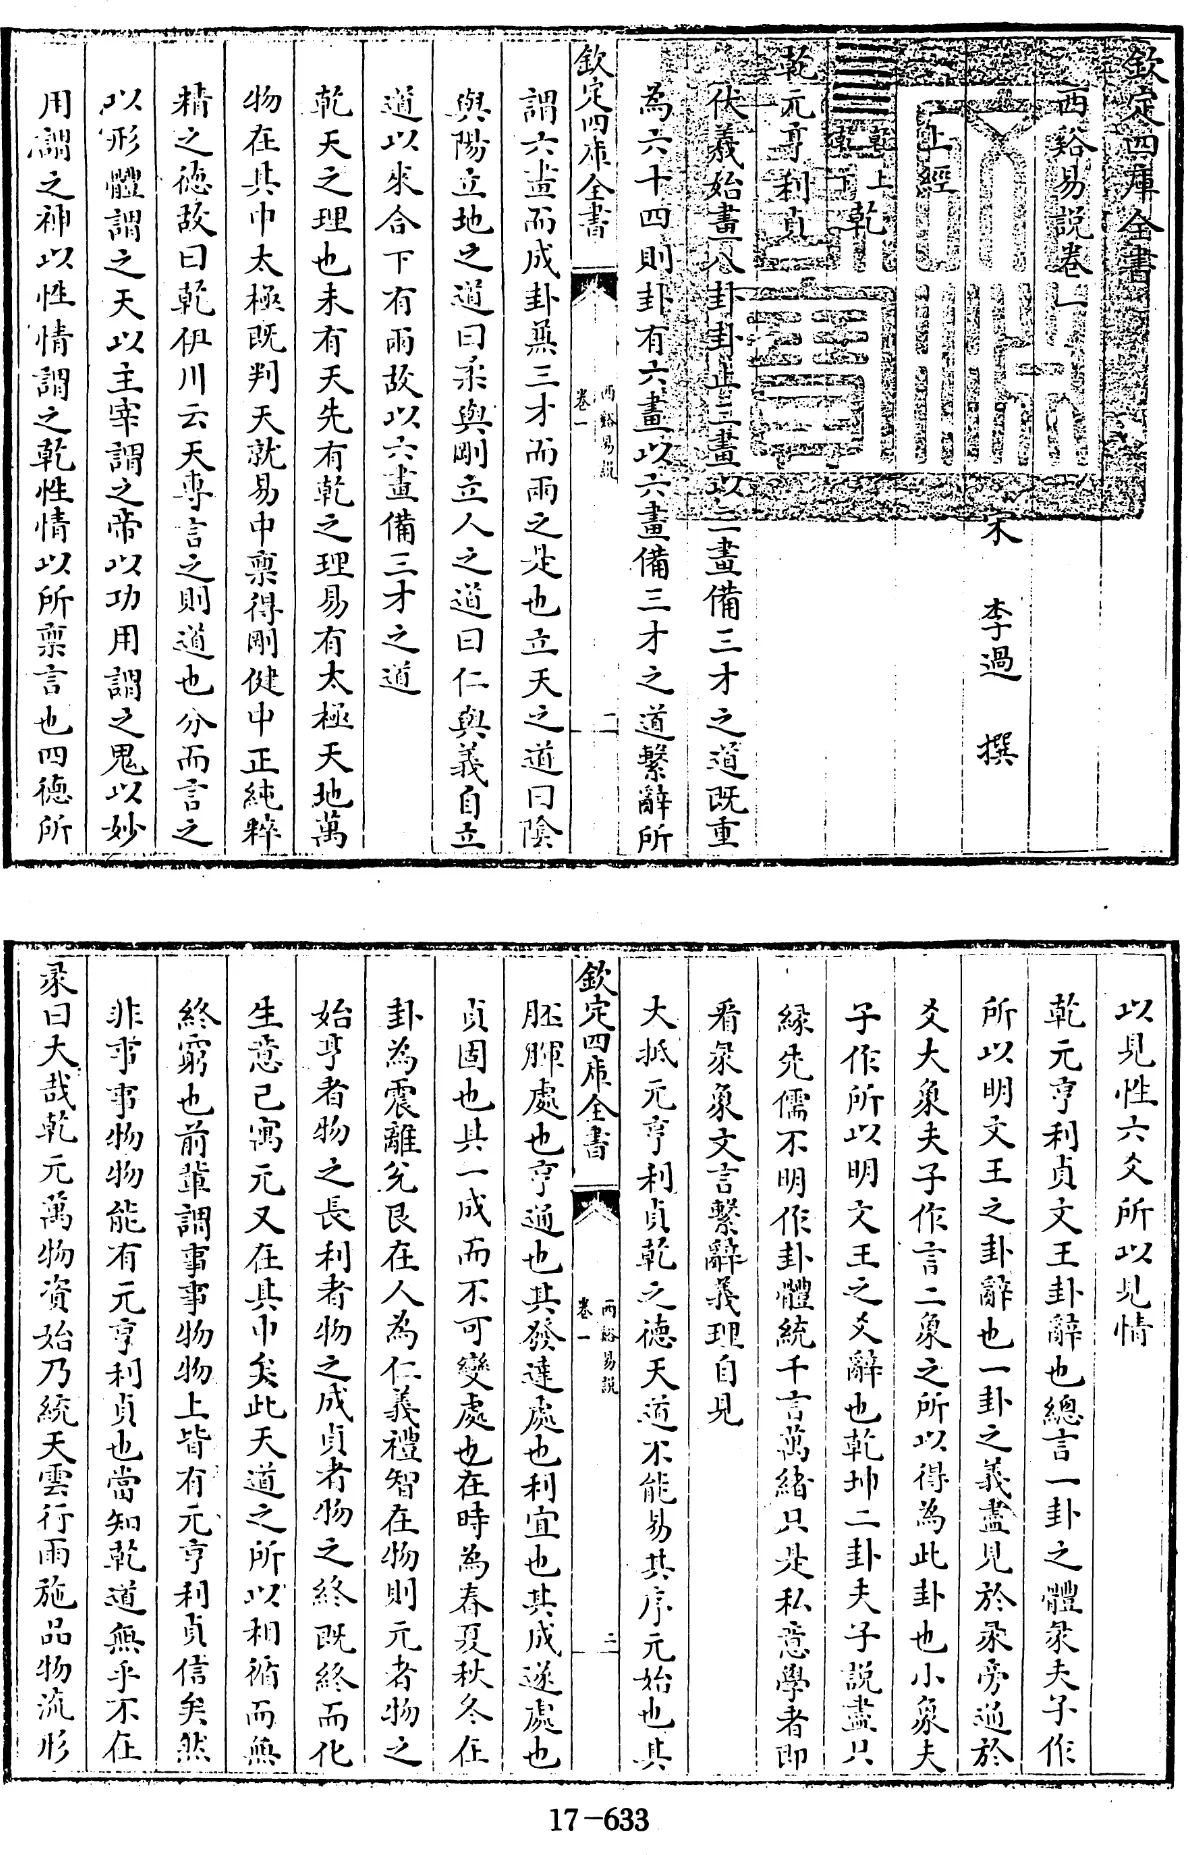 欽定四庫全書
西谿易説卷一
宋 李過 撰
上經
乾上
乾下
乾元亨利貞
伏羲始畫八卦卦止三畫以三畫備三才之道既重
為六十四則卦有六畫以六畫備三才之道繫辭所
欽定四庫全書
西谿易説
卷一
謂六畫而成卦兼三才而兩之是也立天之道曰陰
與陽立地之道曰柔與剛立人之道曰仁與義自立
道以來合下有兩故以六畫備三才之道
乾天之理也未有天先有乾之理易有太極天地萬
物在其中太極既判天就易中稟得剛健中正純粹
精之德故曰乾伊川云天專言之則道也分而言之
以形體謂之天以主宰謂之帝以功用謂之鬼以妙
用謂之神以性情謂之乾性情以所稟言也四德所
以見性六爻所以見情
乾元亨利貞文王卦辭也總言一卦之體彖夫子作
所以明文王之卦辭也一卦之義盡見於彖旁通於
爻大象夫子作言二象之所以得為此卦也小象夫
子作所以明文王之爻辭也乾坤二卦夫子説盡只
緣先儒不明作卦體統千言萬緒只是私意學者即
看彖象文言繫辭義理自見
大抵元亨利貞乾之德天道不能易其序元始也其
欽定四庫全書
西谿易説
卷一
三
胚腪處也亨通也其發達處也利宜也其成遂處也
貞固也其一成而不可變處也在時為春夏秋冬在
卦為震離兌艮在人為仁義禮智在物則元者物之
始亨者物之長利者物之成貞者物之終既終而化
生意已寓元又在其中矣此天道之所以相循而無
終窮也前輩謂事事物物上皆有元亨利貞信矣然
非事事物物能有元亨利貞也當知乾道無乎不在
彖曰大哉乾元萬物資始乃統天雲行雨施品物流形
17-633